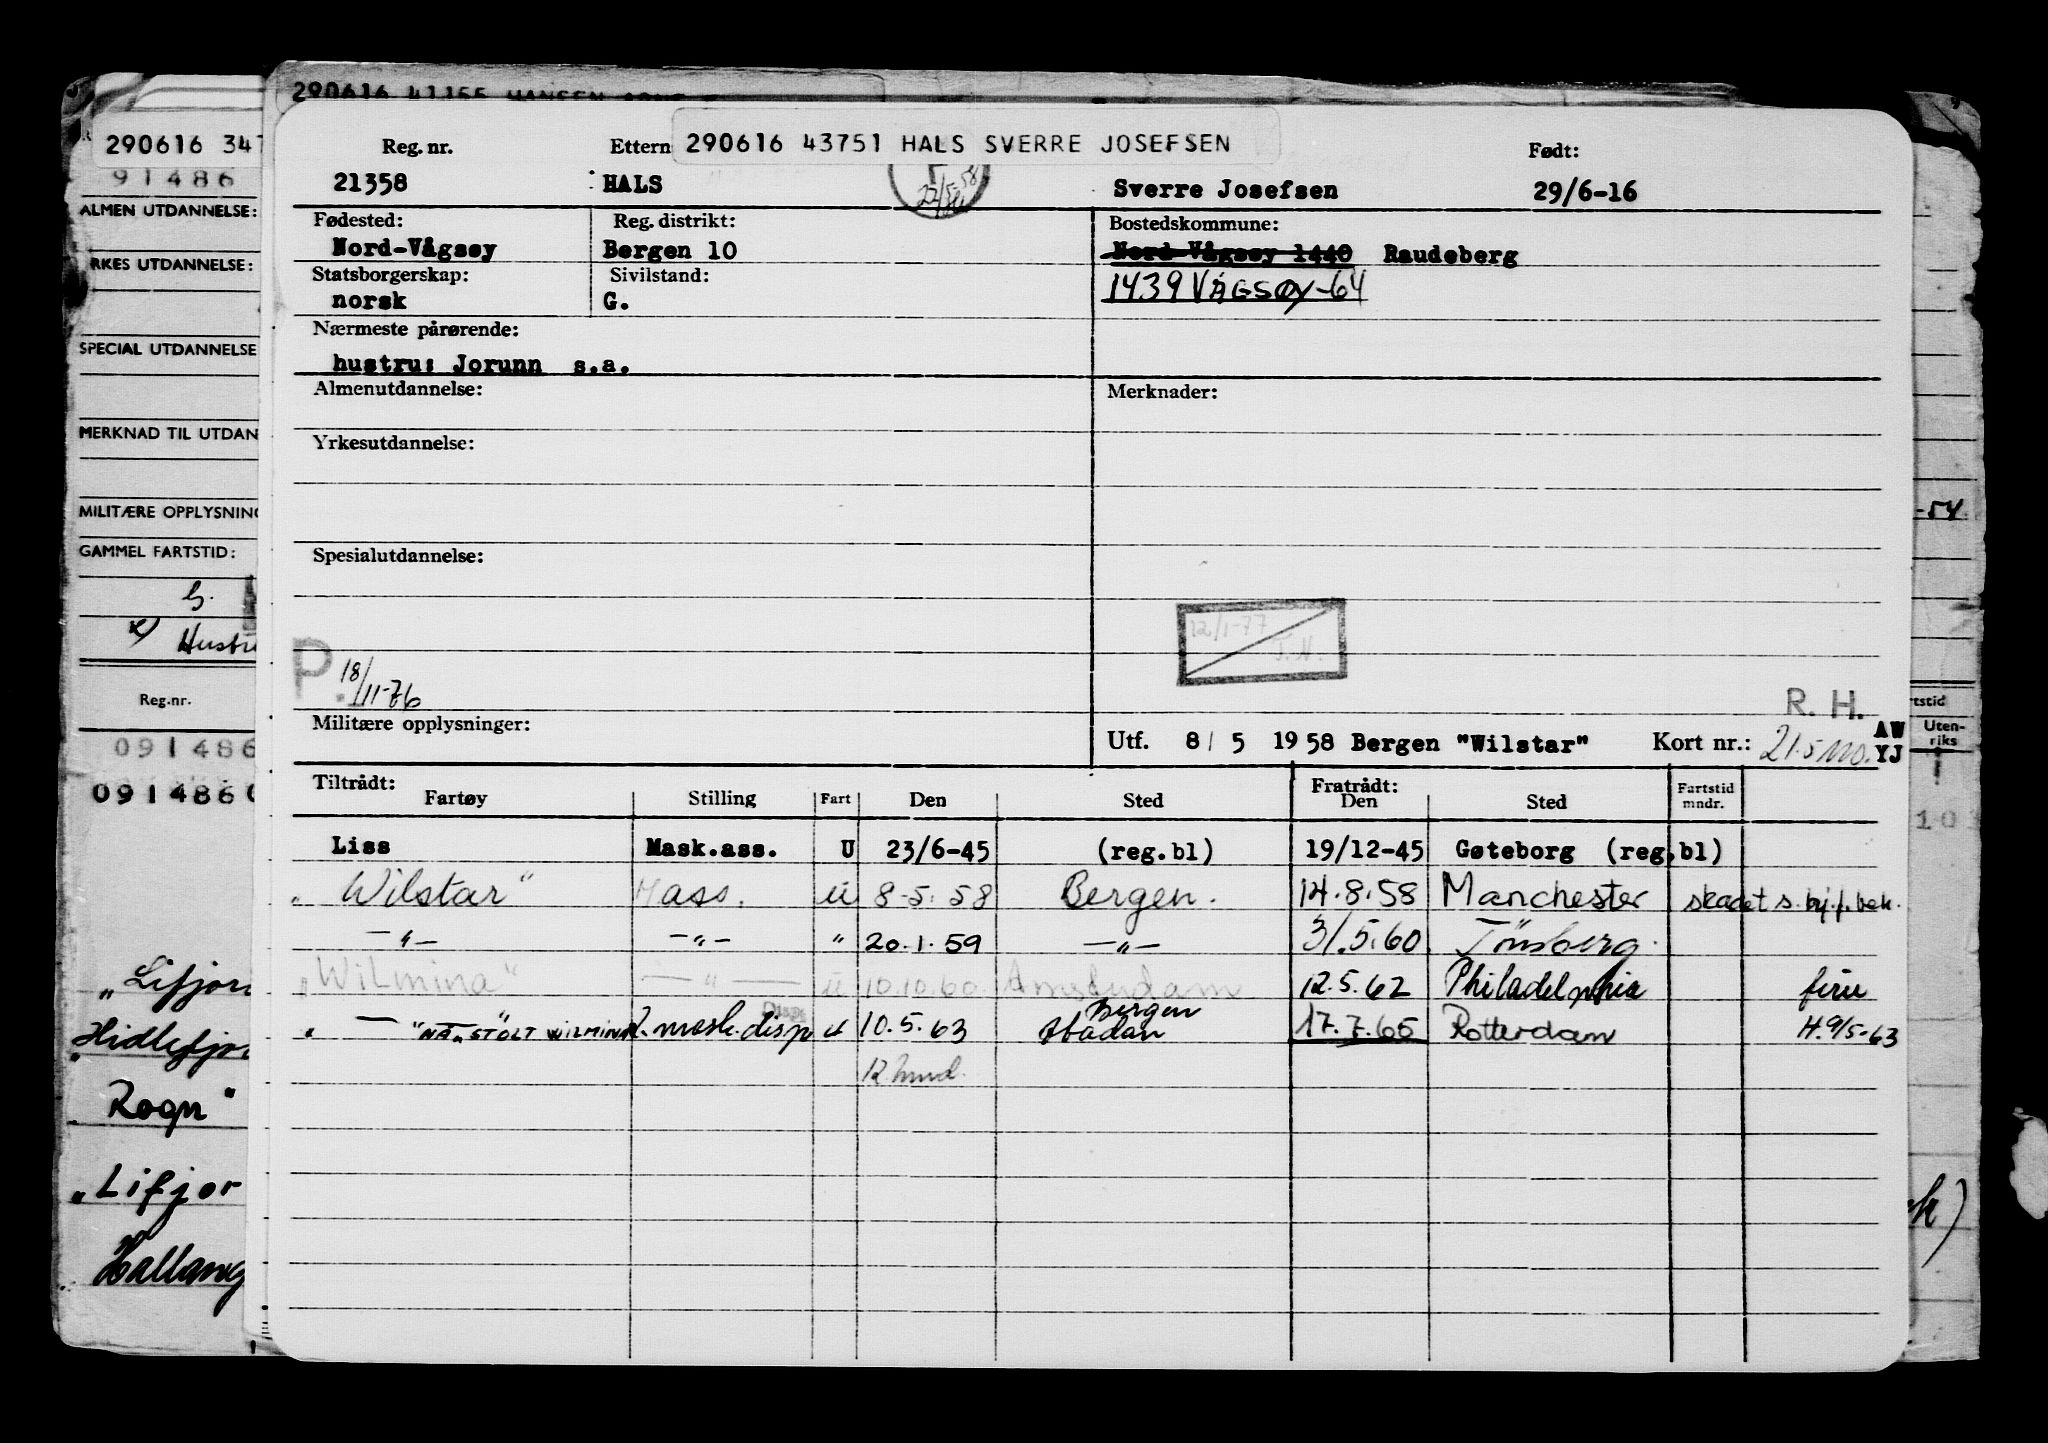 290616 41155 HANSEN
290616 43751 HALS SVERRE JOSEFSEN
290616 347
91486
ALMEN UTDANNELSE:
RKES UTDANNELSE:
SPECIAL UTDANNELSE
MERKNAD TIL UTDAN
MILITÆRE OPPLYSNING
GAMMEL FARTSTID:
G.
x) Hustr
Reg.nr.
091486
091486
„Lifjor
Hidlefjor
Rogn"
„Lifjor
Hallang
Reg. nr. Ettern Født:
21358 HALS Sverre Josefsen 29/6-16
Fødested: Reg. distrikt: Bostedskommune:
Nord-Vågsøy Bergen 10 Nord Vågsøy 1440 Raudeberg
Statsborgerskap: Sivilstand: 1439 VÅGSØY-64
norsk G.
Nærmeste pårørende:
hustru: Jorunn s.a.
Almenutdannelse: Merknader:
Yrkesutdannelse:
Spesialutdannelse:
12/1-77
T.H.
P. 18/11-76
R. H.
Militære opplysninger: Utf. 8/ 5 1958 Bergen "Wilstar" Kort nr.: 21.5 mo. AW YJ
Tiltrådt: Fratrådt:
Fartøy Stilling Fart Den Sted Den Sted Fartstid mndr.
Liss Mask.ass. U 23/6-45 (reg.bl) 19/12-45 Gøteborg (reg.bl)
„Wilstar" Mass. u 8-5.58 Bergen. 14.8.58 Manchester skadet s. hj. f. bek.
—"— —"— " 20.1.59 —"— 31.5.60 Tönsberg.
„Wilmina" —"— u 10.10.60 Amsterdam 12.5.62 Philadelphia ferie
Disp Bergen
" — "NÅ „STOLT WILMINA" 2. mask. disp u 10.5.63 Abadan 17.7.65 Rotterdam H.9/5-63
-54
rtstid
Uten-
riks
10
k)